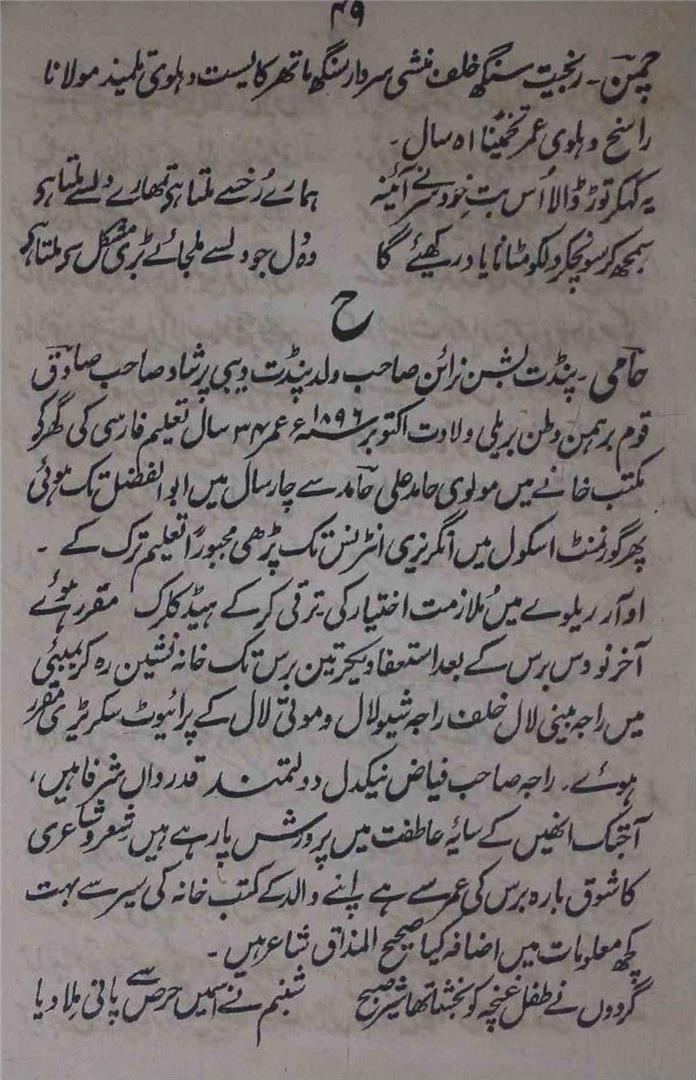 ۴۹
چمن۔ رنجیت سنگھ خلف منشی سردار سنگھ ماتھر کایست دہلوی تلمیذ مولانا
راسخ دہلوی عمر تخمیناً ۵۱ سال۔
یہ کہکر توڑ ڈالا اُس بت خود نے آئینہ ہمارے رُخسے ملتا ہی تمھارے دلسے ملتا ہی
سمجھ کر سونچکر دلکو مٹانا یاد رکھیئے گا وہ دل جو دلسے ملجائے بڑی مشکل سے ملتا ہی
ح
حامی۔ پنڈت بشن نرائن صاحب ولد پنڈت دیبی پرشاد صاحب صادق
قوم برہمن وطن بریلی ولادت اکتوبر سنہ ۱۸۹۶ء عمر ۳۴ سال تعلیم فارسی کی گھر کو
مکتب خانے میں مولوی حامد علی حامد سے چار سال میں ابوالفضل تک ہوئی
پھر گورنمنٹ اسکول میں انگریزی انٹرنس تک پڑھی مجبوراً تعلیم ترک کے ۔
او آر ریلوے میں مُلازمت اختیار کی ترقی کر کے ہیڈ کلرک مقرر ہوئے
آخر نو دس برس کے بعد استعفا دیکر تین برس تک خانہ نشین رہ کر بمبئی
میں راجہ بینی لال خلف راجہ شیو لال و موتی لال کے پرائیوٹ سکرٹیری مقرر
ہوئے۔ راجہ صاحب فیاض نیکدل دولتمند قدرداں شرفا ہیں،
آجتک انھیں کے سایۂ عاطفت میں پرورش پا رہے ہیں شعر و شاعری
کا شوق بارہ برس کی عمر سے ہے اپنے والد کے کتب خانہ کی سیر سے بہت
کچھ معلومات میں اضافہ کیا صحیح المذاق شاعر ہیں۔
گردوں نے طفل غنچہ کو بخشا تھا شیر صبح شبنم نے اسمیں حرص سے پانی ملا دیا